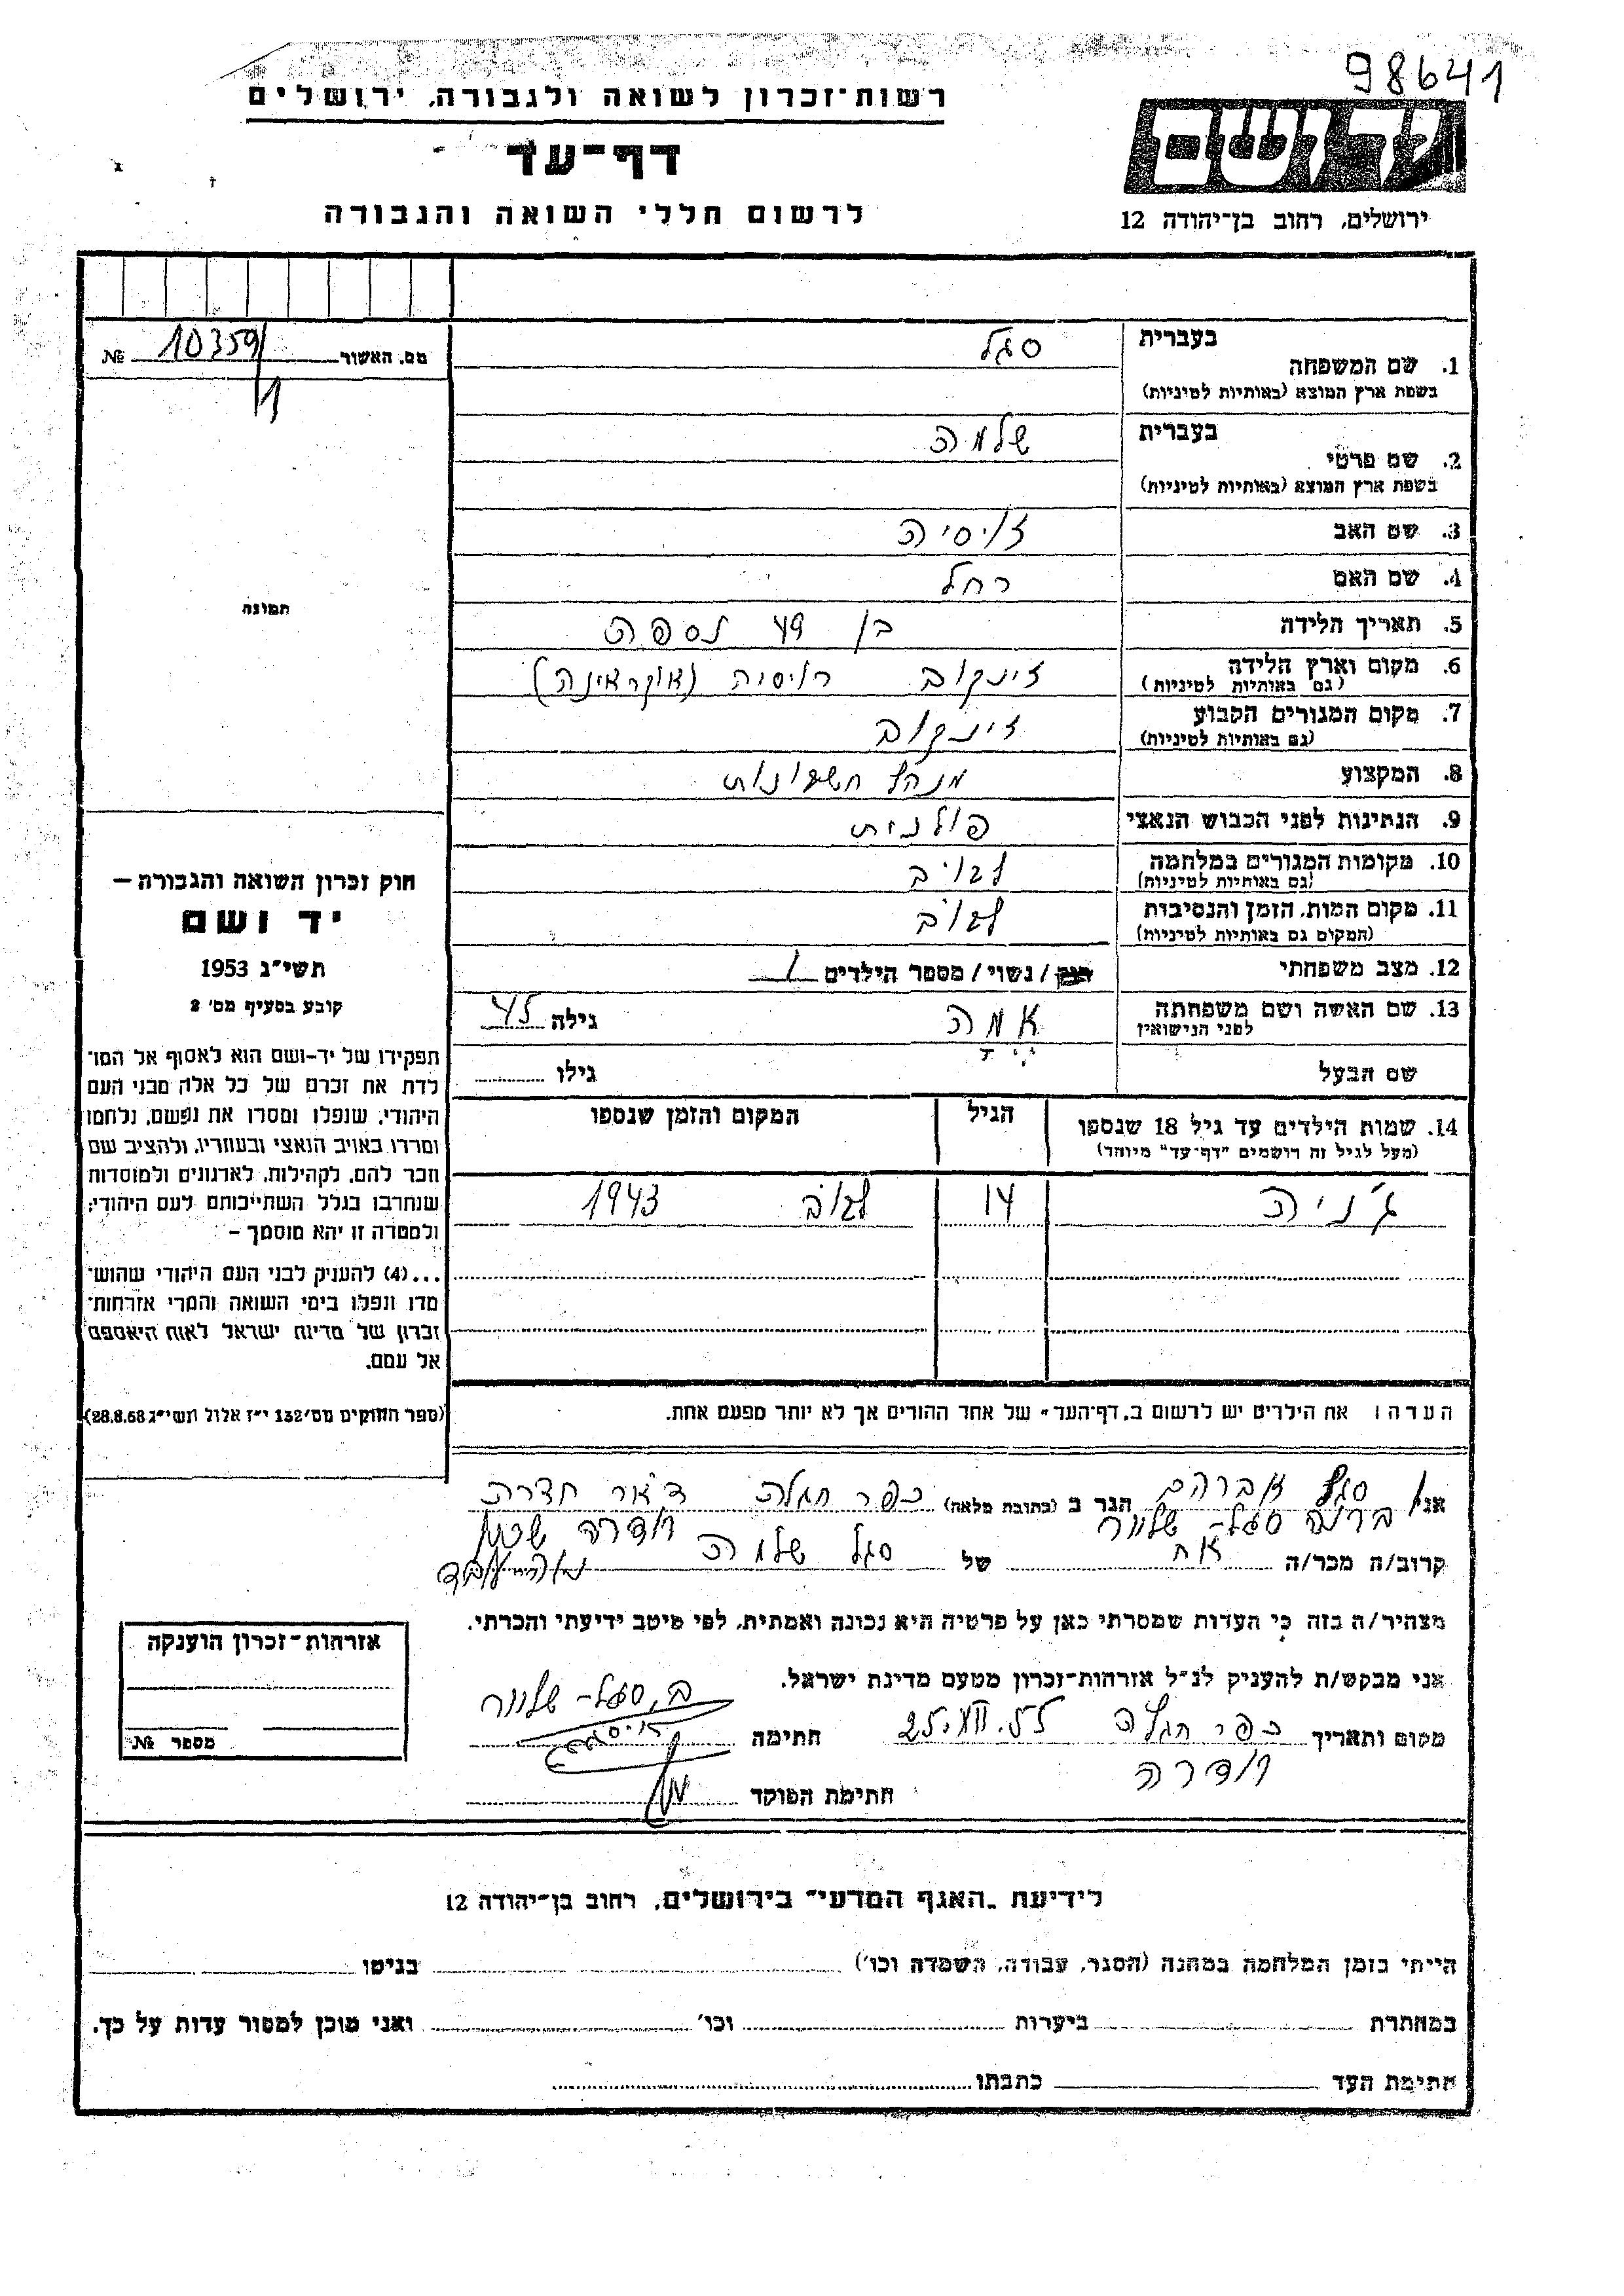 98641
רשות־זכרון לשואה ולגבורה, ירושלים
דף־עד
לרשום חללי השואה והגבורה
יד ושם
ירושלים, רחוב בן־יהודה 12
מס. האשור 10359/1 №
תמונה
חוק זכרון השואה והגבורה —
יד ושם
תשי״ג 1953
קובע בסעיף מס׳ 2
תפקידו של יד־ושם הוא לאסוף אל המו־
לדת את זכרם של כל אלה מבני העם
היהודי, שנפלו ומסרו את נפשם, נלחמו
ומרדו באויב הנאצי ובעוזריו, ולהציב שם
וזכר להם, לקהילות, לארגונים ולמוסדות
שנחרבו בגלל השתייכותם לעם היהודי;
ולמטרה זו יהא מוסמך —
...(4) להעניק לבני העם היהודי שהוש־
מדו ונפלו בימי השואה והמרי אזרחות־
זכרון של מדינת ישראל לאות היאספם
אל עמם.
(ספר החוקים מס׳ 132 י״ז אלול תשי״ג 28.8.53)
בעברית סגל
1. שם המשפחה
בשפת ארץ המוצא (באותיות לטיניות)
בעברית שלמה
2. שם פרטי
בשפת ארץ המוצא (באותיות לטיניות)
3. שם האב
4. שם האם רחל
5. תאריך הלידה בן 49 נספה
6. מקום וארץ הלידה זינקוב רוסיה (אוקראינה)
(גם באותיות לטיניות)
7. מקום המגורים הקבוע זינקוב
(גם באותיות לטיניות)
8. המקצוע מנהל חשבונות
9. הנתינות לפני הכבוש הנאצי פולנית
10. מקומות המגורים במלחמה לבוב
(גם באותיות לטיניות)
11. מקום המות, הזמן והנסיבות לבוב
(המקום גם באותיות לטיניות)
12. מצב משפחתי רווק / נשוי / מספר הילדים 1
13. שם האשה ושם משפחתה אמה גילה 45
לפני הנישואין
שם הבעל גילו
14. שמות הילדים עד גיל 18 שנספו הגיל המקום והזמן שנספו
(מעל לגיל זה רושמים ״דף־עד״ מיוחד)
ג׳ניה 14 לבוב 1943
הערה: את הילדים יש לרשום ב„דף־העד״ של אחד ההורים אך לא יותר מפעם אחת.
אני סגל אברהם הגר ב (כתובת מלאה) כפר הגלה דאר חדרה
ברנה סגל־שלוור חדרה שכון
קרוב/ה מכר/ה אח של סגל שלמה
מצהיר/ה בזה כי העדות שמסרתי כאן על פרטיה היא נכונה ואמתית, לפי מיטב ידיעתי והכרתי.
אני מבקש/ת להעניק לנ״ל אזרחות־זכרון מטעם מדינת ישראל.
ב, סגל־שלוור
מקום ותאריך כפר הגלה 25.VII.55 חתימה
חדרה
חתימת הפוקד
אזרחות־זכרון הוענקה
מספר №
לידיעת „האגף המדעי״ בירושלים, רחוב בן־יהודה 12
הייתי בזמן המלחמה במחנה (הסגר, עבודה, השמדה וכו׳) בגיטו
במחתרת ביערות וכו׳ ואני מוכן למסור עדות על כך.
חתימת העד כתבתו